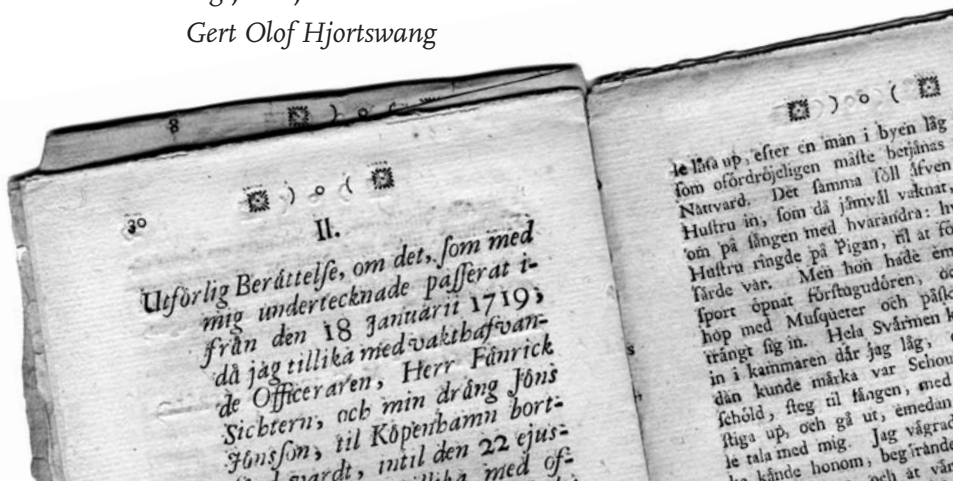 Gert Olof Hjortswang
8
) o
30
) o (
II.
Utförlig Beråttelſe, om det, ſom med
mig undertecknade paſſerat i-
från den 18 Januarii 1719;
då jag tillika med vakthafvan-
de Officeraren, Herr Fånrick
Sichtern, och min drång Jöns
Jönsſon, til Köpenhamn bort-
vardt, intil den 22 ejus-
med of-
) o (
le låta up, efter en man i byen låg
ſom ofördröjeligen måſte betjånas
Nattvard. Det ſamma föll åfven
Huſtru in, ſom då jåmvål vaknat,
om på ſången med hvarandra: hv
Huſtru ringde på Pigan, til at fö
fårde var. Men hon hade em
ſport öpnat förſtugudören, oc
hop med Muſqueter och påſk
trångt ſig in. Hela Svårmen k
in i kammaren dår jag låg,
dån kunde mårka var Schou
ſchöld, ſteg til ſången, med
ſtiga up, och gå ut, emedan
le tala med mig. Jag vågrad
kånde honom, begſrånde
och åt vår